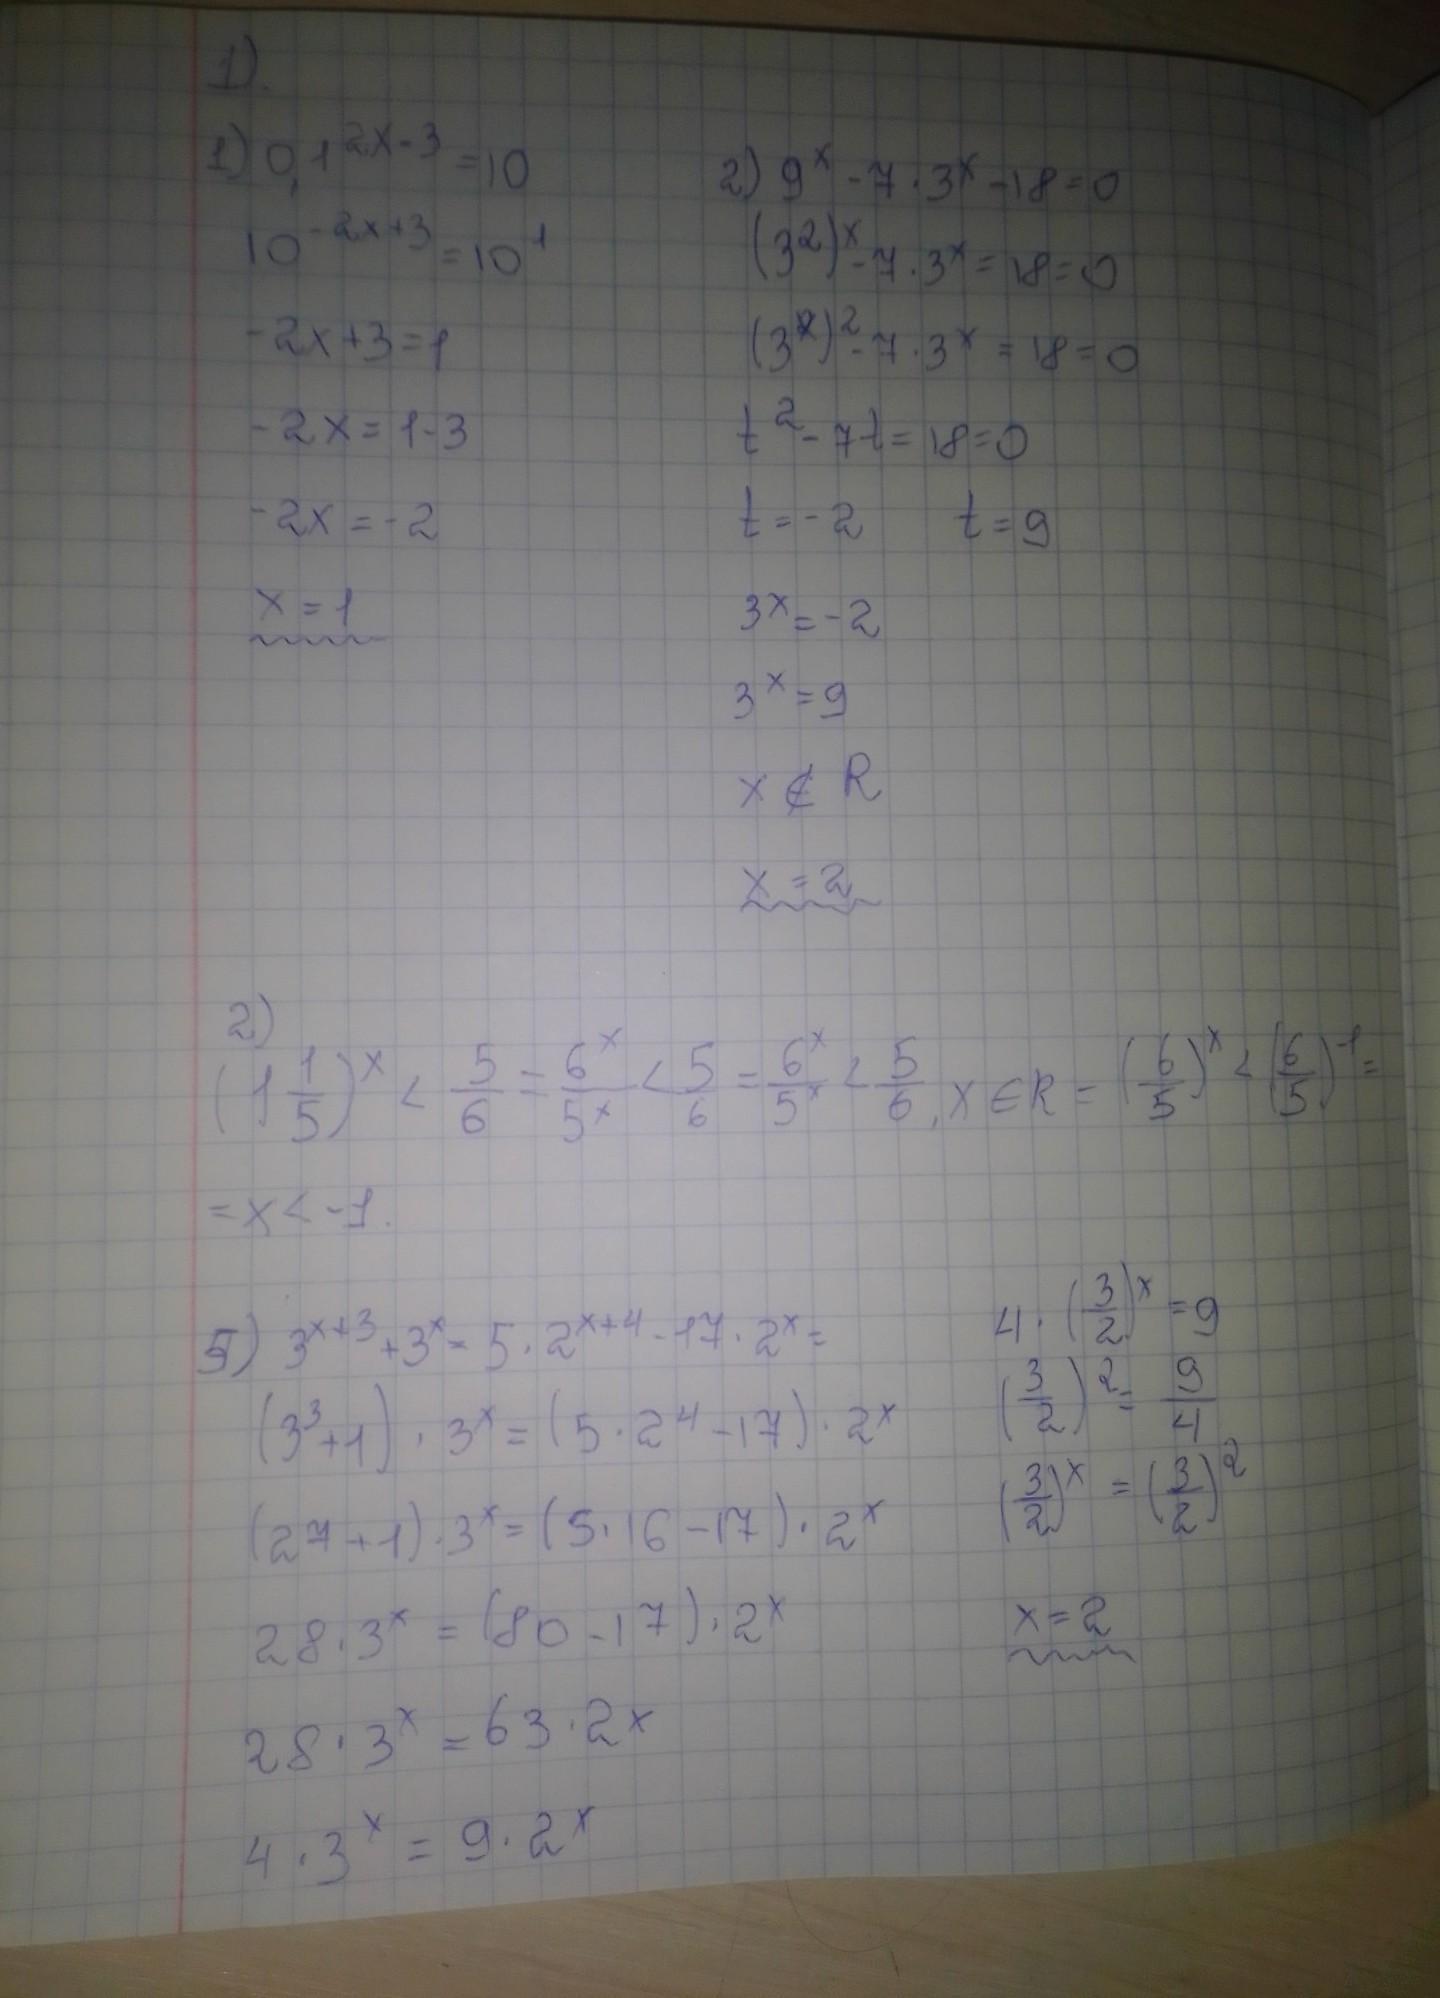 1).
1) 0,1^{2x-3} = 10
10^{-2x+3} = 10^1
-2x+3=1
-2x = 1-3
-2x = -2
x = 1
2) 9^x - 7 · 3^x - 18 = 0
(3^2)^x - 7 · 3^x = 18 = 0
(3^x)^2 - 7 · 3^x = 18 = 0
t^2 - 7t = 18 = 0
t = -2 t = 9
3^x = -2
3^x = 9
x ∉ R
x = 2
2)
(1 1/5)^x < 5/6 = 6^x/5^x < 5/6 = 6^x/5^x < 5/6, x ∈ R = (6/5)^x < (6/5)^{-1} =
= x < -1.
5) 3^{x+3} + 3^x = 5 · 2^{x+4} - 17 · 2^x =
(3^3+1) · 3^x = (5 · 2^4 - 17) · 2^x
(27+1) · 3^x = (5 · 16 - 17) · 2^x
28 · 3^x = (80 - 17) · 2^x
28 · 3^x = 63 · 2^x
4 · 3^x = 9 · 2^x
4 · (3/2)^x = 9
(3/2)^2 = 9/4
(3/2)^x = (3/2)^2
x = 2